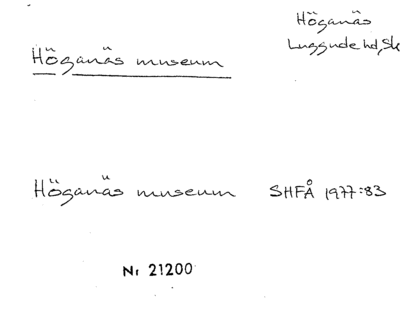 Höganäs
Luggude hd, Sk
Höganäs museum
Höganäs museum SHFÅ 1977:83
Nr 21200